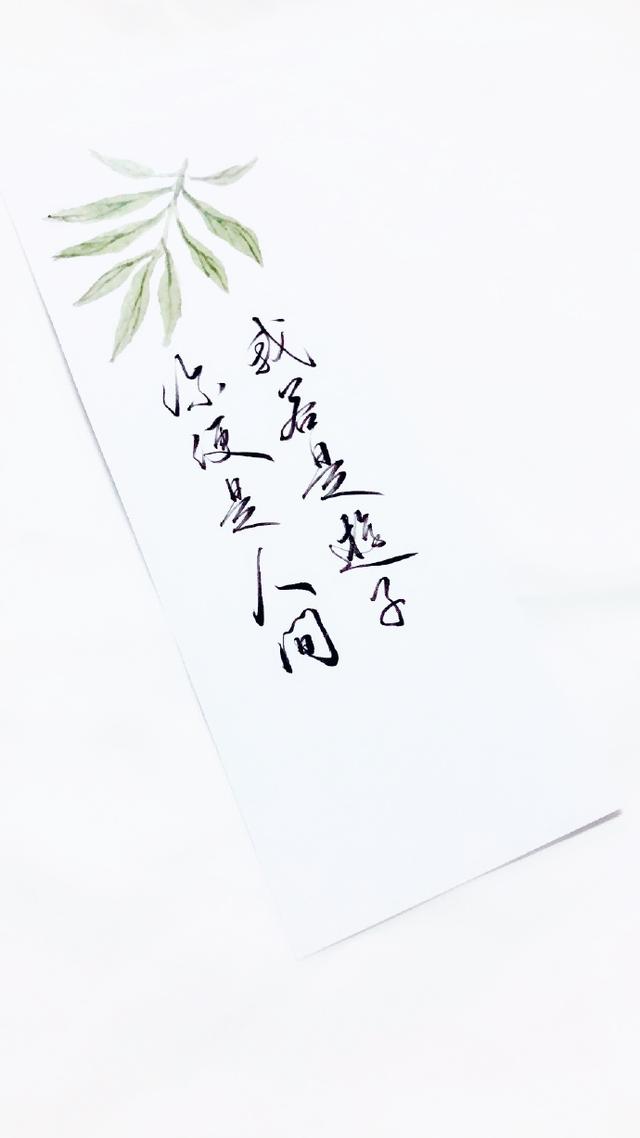 我若是游子
你便是人间